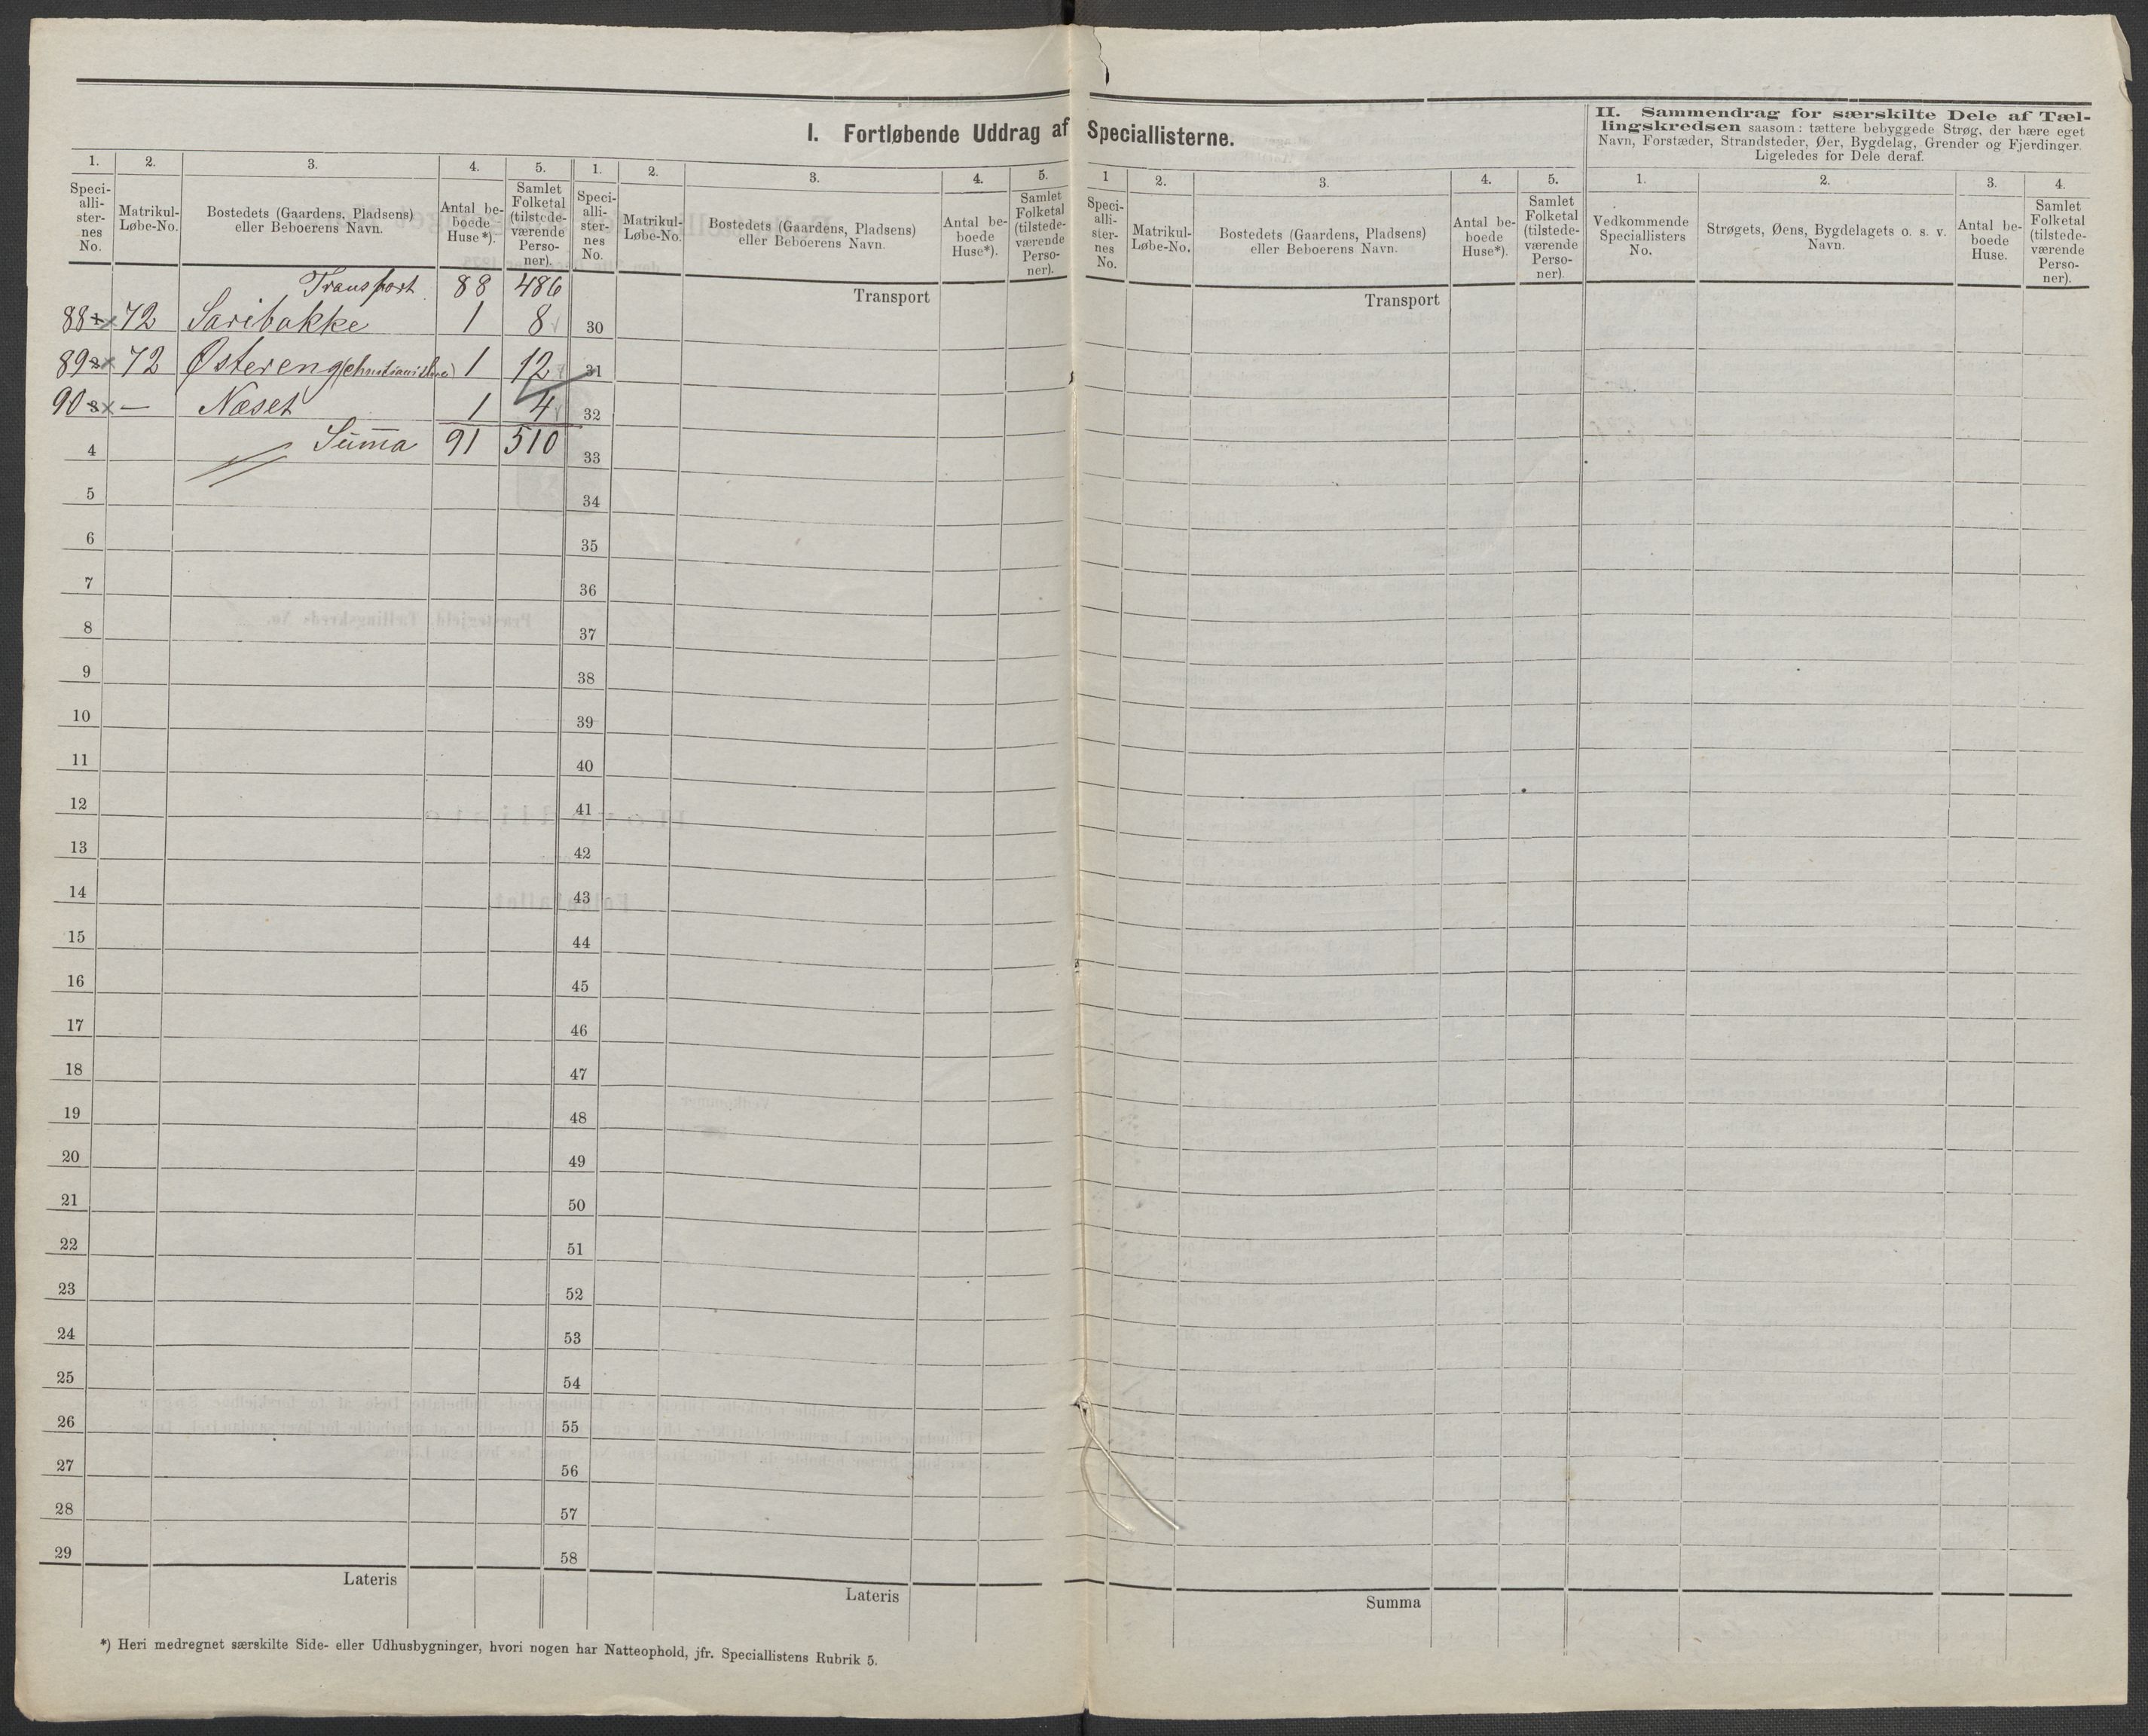 I. Fortløbende Uddrag af Speciallisterne.
II. Sammendrag for særskilte Dele af Tæl-
lingskredsen saasom: tættere bebyggede Strøg, der bære eget
Navn, Forstæder, Strandsteder, Øer, Bygdelag, Grender og Fjerdinger.
Ligeledes for Dele deraf.
1. 2. 3. 4. 5.
Speci-
alli-
ster-
nes
No.
Matrikul-
Løbe-No.
Bostedets (Gaardens, Pladsens)
eller Beboerens Navn.
Antal be-
boede
Huse*).
Samlet
Folketal
(tilstede-
værende
Perso-
ner).
1. 2. 3. 4. 5.
Speci-
alli-
ster-
nes
No.
Matrikul-
Løbe-No.
Bostedets (Gaardens, Pladsens)
eller Beboerens Navn.
Antal be-
boede
Huse*).
Samlet
Folketal
(tilstede-
værende
Perso-
ner).
1 2. 3. 4. 5.
Speci-
alli-
ster-
nes
No.
Matrikul-
Løbe-No.
Bostedets (Gaardens, Pladsens)
eller Beboerens Navn.
Antal be-
boede
Huse*).
Samlet
Folketal
(tilstede-
værende
Perso-
ner).
1. 2. 3. 4.
Vedkommende
Speciallisters
No.
Strøgets, Øens, Bygdelagets o. s. v.
Navn.
Antal be-
boede
Huse.
Samlet
Folketal
(tilstede-
værende
Perso-
ner).
Transport 88 486
Transport
Transport
88 72 Saribakke 1 8
30
89 72 Østereng 1 12
31
90 — Næset 1 4
32
Summa 91 510
4 33
5 34
6 35
7 36
8 37
9 38
10 39
11 40
12 41
13 42
14 43
15 44
16 45
17 46
18 47
19 48
20 49
21 50
22 51
23 52
24 53
25 54
26 55
27 56
28 57
29 58
Lateris
Lateris
Summa
*) Heri medregnet særskilte Side- eller Udhusbygninger, hvori nogen har Natteophold, jfr. Speciallistens Rubrik 5.